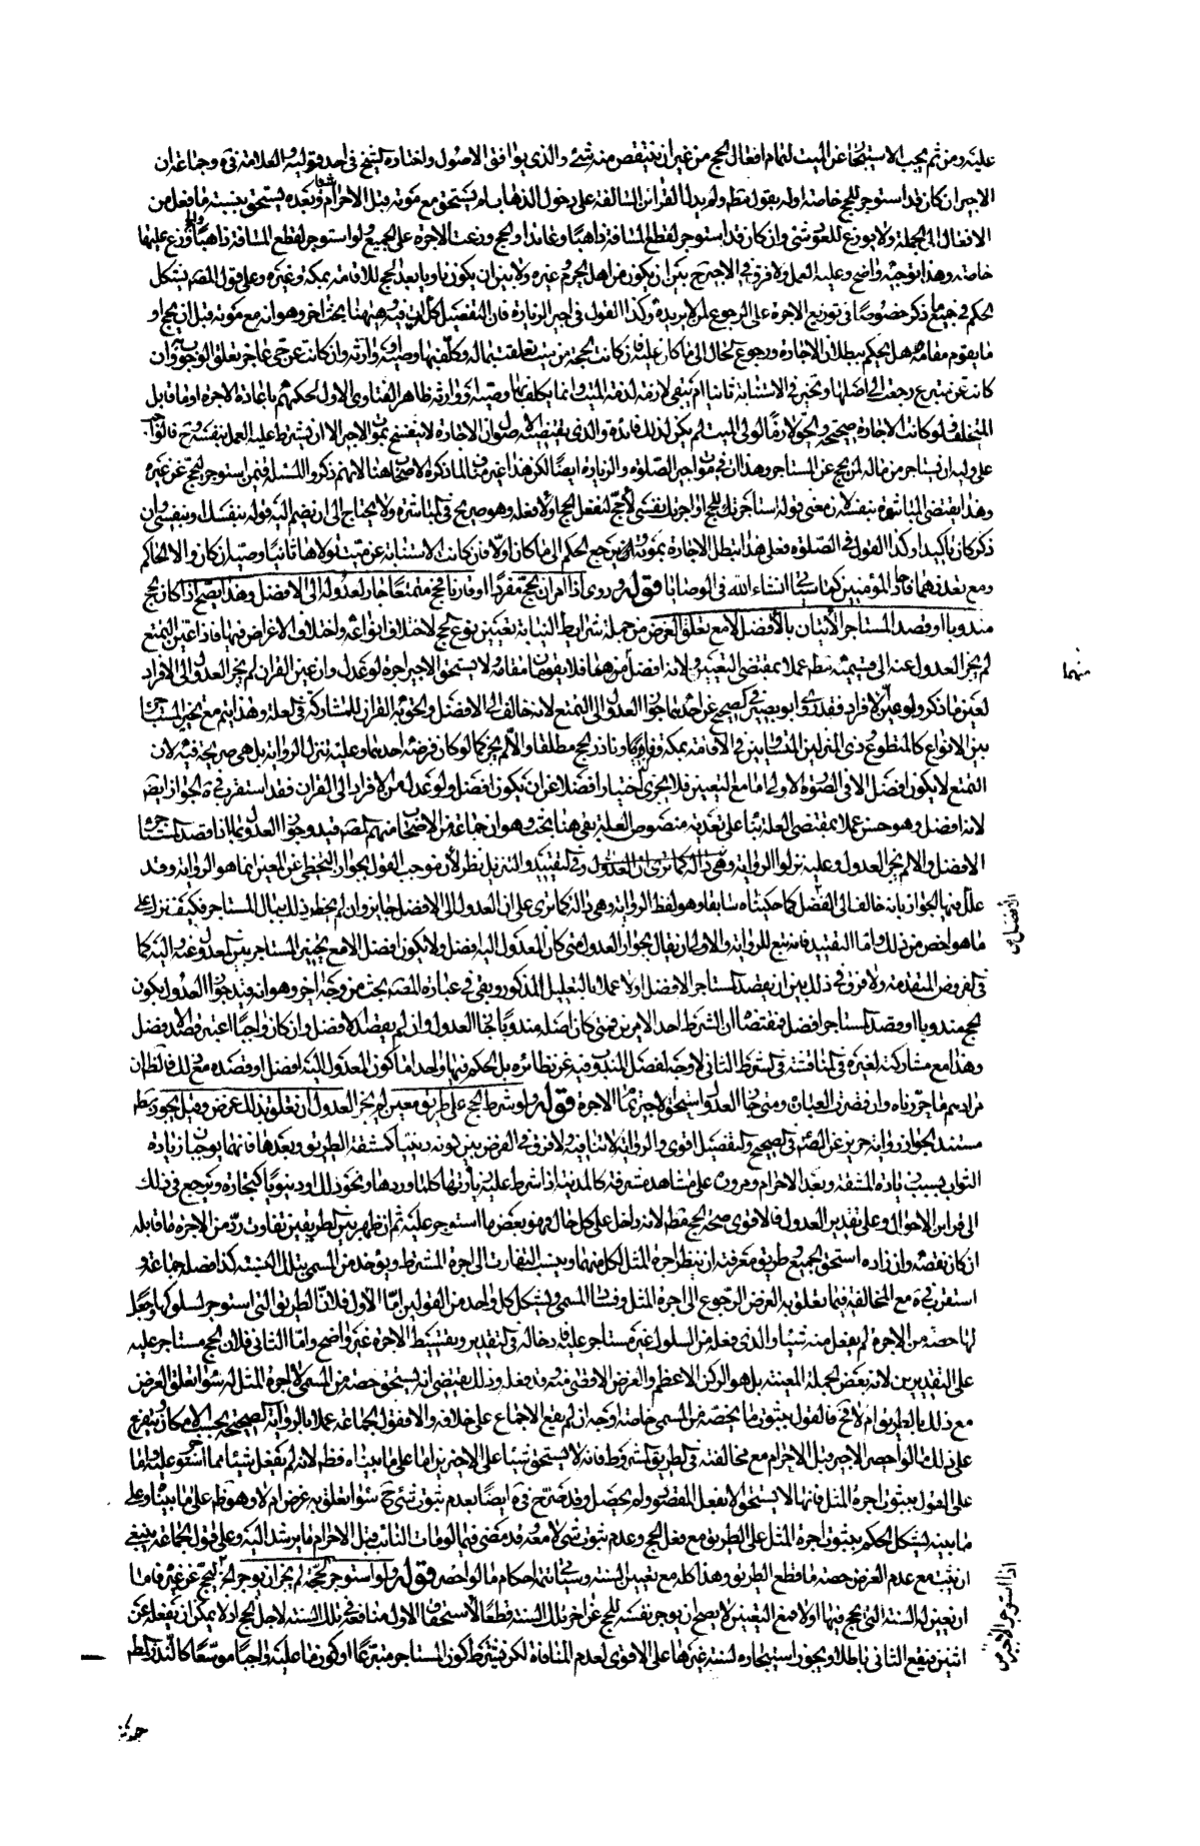 عليه ومن ثم يجب الاستيجار عن الميت لتمام افعال الحج من غير ان ينتقص منه شئ والذى يوافق الاصول واختاره الشيخ فى احد قوليه والعلامة فى ه وجماعة ان
الاجير ان كان قد استوجر للحج خاصة اوله بقول مط ولم يدل القرائن السالفة على دخول الذهاب لم يستحق مع موته قبل الاحرام شيئا وبعده يستحق بنسبة ما فعل من
الافعال الى الجملة ولا يوزع للعود شئ وان كان قد استوجر لقطع المسافة ذاهبا وعائدا والحج وزعت الاجرة على الجميع ولو استوجر لقطع المسافة ذاهبا والحج وزع عليهما
خاصة وهذا توجيه واضح وعليه العمل ولا فرق فى الاجير بين ان يكون من اهل الحرم وغيره ولا بين ان يكون ناويا بعد الحج للاقامة بمكة وغيره وعلى قول المص يشكل
الحكم فى جميع ما ذكر خصوصا فى توزيع الاجرة على الرجوع لمن لا يريده وكذا القول فى اجير الزيارة فان التفصيل كل ات فيه وهيهنا بحث اخر وهو انه مع موته قبل ان يحج او
ما يقوم مقامه هل يحكم ببطلان الاجارة ورجوع الحال الى ما كان عليه فان كانت الحجة عن ميت تعلقت بماله وكلف بها وصيه او وارثه وان كانت عن حى عاجز تعلق الوجوب به وان
كانت عن متبرع رجعت الى اصلها وتخير فى الاستنابة ثانيا ام يبقى لازمة لذمة الميت وانما يكلف بها وصيه او وارثه ظاهر الفتاوى الاول لحكمهم باعادة الاجرة او ما قابل
المتخلف ولو كانت الاجارة صحيحة والحج لازما لولى الميت لم يكن لذلك فائدة والذى يقتضيه الاصول ان الاجارة لا ينفسخ بموت الاجير الا ان يشترط عليه العمل بنفسه وح قالوا جب
على وليه ان يستاجر من ماله لمن يحج عن المستاجر وهذا ات فى موت اجير الصلوة والزيارة ايضا لكن هذا غير مناف لما ذكره الاصحاب هنا لانهم ذكروا المسئلة فيمن استوجر ليحج عن غيره
وهذا يقتضى المباشرة بنفسه لان معنى قوله استاجرتك للحج او اجرتك نفسى لاحج لنفعل الحج اولا فعله وهو صريح فى المباشرة ولا يحتاج الى ان يضم اليه قوله بنفسك وبنفسى وان
ذكر كان تاكيدا وكذا القول فى الصلوة فعلى هذا تبطل الاجارة بموته ويرجع الحكم الى ما كان اولا فان كانت الاستنابة عن ميت تولاها ثانيا وصيه ان كان والا الحاكم
ومع تعذرهما فاحاد المؤمنين كما سياتى انشاء الله فى الوصايا قوله وروى اذا امر ان يحج مفردا او قارنا فحج متمتعا جاز لعدوله الى الافضل وهذا يصح اذا كان الحج
مندوبا او قصد المستاجر الاتيان بالافضل لا مع تعلق الغرض من جملة شرايط النيابة تعيين نوع الحج لاختلاف انواعه واختلاف الاغراض فيها فاذا عين التمتع
لم يجز العدول عنه الى قسيميه مط عملا بمقتضى التعيين ولانه افضل منهما فلا يقومان مقامه ولا يستحق الاجير اجرة لو عدل وان عين القران لم يجز العدول الى الافراد
لعين ما ذكر ولو عين الافراد فقد روى ابو بصير فى الصحيح عن احدهما جواز العدول الى التمتع لانه خالف الى الافضل والحق به القران للمشاركة فى العلة وهذا يتم مع تخيير المستاجر
بين الانواع كالمتطوع وذى المنزلين المتساويين فى الاقامة بمكة وناذر الحج مطلقا والا لم يجز كما لو كان فرضه احدهما وعليه تنزل الرواية بل هى صريحة فيه لان
التمتع لا يكون افضل الا فى الصورة الاولى اما مع التعيين فلا يجزى اختيارا فضلا عن ان يكون افضل ولو عدل من الافراد الى القران فقد استقرب فى ه الجواز ايضا
لانه افضل وهو حسن عملا بمقتضى العلة بناء على تعدية منصوص العلة بقى هنا بحث وهو ان جماعة من الاصحاب منهم المصر قيدوا جواز العدول بما اذا قصد المستاجر
الافضل والا لم يجز العدول وعليه نزلوا الرواية وهى دالة كما ترى ان العدول وفى التقييد والتنزيل نظر لان موجب القول بجواز التخطى عن المعين انما هو الرواية وقد
علل فيها الجواز بانه خالف الى الفضل كما حكيناه سابقا وهو لفظ الرواية وهى دالة كما ترى على ان العدول الى الافضل جايز وان لم يخطر ذلك ببال المستاجر فكيف ينزل على
ما هو اخص من ذلك واما التقييد فانه تبع للرواية والاولى ان يقال بجواز العدول متى كان المعدول اليه افضل ولا يكون افضل الا مع تخيير المستاجر بين المعدول عنه واليه كما
فى الفروض المتقدمة ولا فرق فى ذلك بين ان يقصد المستاجر الافضل اولا عملا بالتعليل المذكور وبقى فى عبارة المصر بحث من وجه اخر وهو انه قيد جواز العدول بكون
الحج مندوبا او قصد المستاجر افضل فمقتضاه ان الشرط احد الامرين فمتى كان اصله مندوبا جاز العدول وان لم يقصد الافضل وان كان واجبا اعتبر قصد الافضل
وهذا مع مشاركته لغيره فى المناقشة فى الشرط الثانى لا وجه لفصل المندوب فيه عن نظائره بل الحكم فيها واحد اما كون المعدول اليه افضل او قصده مع ذلك فالظاهر ان
مرادهم ما حررناه وان قصرت العبارة ومتى جاز العدول استحق الاجير تمام الاجرة قوله ولو شرط الحج على طريق معين لم يجز العدول ان تعلق بذلك غرض وقيل يجوز مط
مستند الجواز رواية حريز عن الص م فى الصحيح والتفصيل اقوى والرواية لا تنافيه ولا فرق فى الغرض بين كونه دينيا كمشقة الطريق وبعدها فانهما يوجبان زيادة
الثواب بسبب زيادة المشقة وبعد الاحرام ومروره على مشاهد مشرفة كالمدينة اذا شرط عليه زيارتها كلما وردها ونحو ذلك او دنيويا كتجارة ويرجع فى ذلك
الى قراين الاحوال وعلى تقدير العدول فالاقوى صحة الحج مط لانه داخل على كل حال فهو بعض ما استوجر عليه ثم ان ظهر بين الطريقين تفاوت رد من الاجرة ما قابله
ان كان نقصه وان زاده استحق الجميع وطريق معرفته ان ينظر اجرة المثل لكل منهما وينسب التفاوت الى اجرة المشترط ويوخذ من المسمى بتلك النسبة كذا فصله جماعة و
استقرب فى ه مع المخالفة فيما تعلق به الغرض الرجوع الى اجرة المثل وفساد المسمى ويشكل كل واحد من القولين اما الاول فلان الطريق التى استوجر لسلوكها وجعل
لها حصة من الاجرة لم يفعل منه شيئا والذى فعله من السلوك غير مستاجر عليه فادخاله فى التقدير وتقسيط الاجرة غير واضح واما الثانى فلان الحج مستاجر عليه
على التقديرين لانه بعض الجملة المعينة بل هو الركن الاعظم والغرض الاقصى منه وقد فعل وذلك يقتضى انه يستحق حصة من المسمى لا اجرة المثل له سواء تعلق الغرض
مع ذلك بالطريق ام لا فح فالقول بثبوت ما يخصه من المسمى خاصة وجه ان لم يقع الاجماع على خلافه والا فقول الجماعة عملا بالرواية الصحيحة بحسب الامكان ويتفرع
على ذلك ما لو احصر الاجير قبل الاحرام مع مخالفته فى الطريق المشروط فانه لا يستحق شيئا على الاخيرين اما على ما بيناه فظ لانه لم يفعل شيئا مما استوجر عليه واما
على القول بثبوت اجرة المثل فانها لا يستحق الا بفعل المقصود ولم يحصل وقد صرح فى ه ايضا بعدم ثبوت شئ ح سواء تعلق به غرض ام لا وهو ظ على ما بيناه وعلى
ما بينه يشكل الحكم بثبوت اجرة المثل على الطريق مع فعل الحج وعدم ثبوت شئ لا معه وقد مضى فيما لو مات النائب قبل الاحرام ما يرشد اليه وعلى قول الجماعة ينبغى
ان يثبت مع عدم الغرض حصة ما قطع الطريق وهذا كله مع تعيين السنة وسياتى تتمة احكام ما لو احصر قوله ولو استوجر لحجة لم يجز ان يوجر لاخر ليحج عن غيره فاما
ان يعين له السنة التى يحج فيها او لا فمع التعيين لا يصح ان يوجر نفسه للحج عن اخر تلك السنة قطعا لاستحقاق الاول منافعه فى تلك السنة لاجل الحج اذ لا يمكن ان يفعله عن
اثنين فيقع الثانى باطلا ويجوز استيجاره لسنة غيرها على الاقوى لعدم المنافاة لكن يشترط كون المستاجر متبرعا او كون ما عليه واجبا موسعا كالنذر المط
منهما
الافضل ص
اذا استوجر الاجير ص